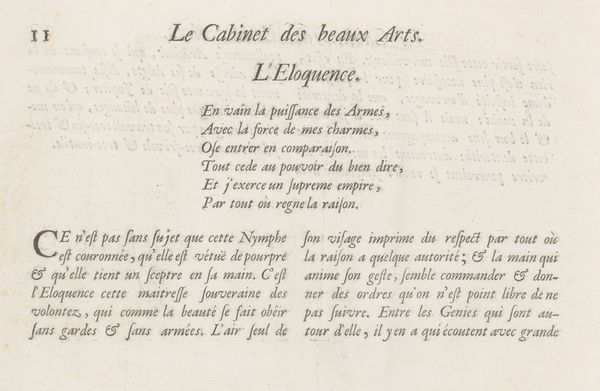 11
Le Cabinet des beaux Arts.
L'Eloquence.
En vain la puiſſance des Armes,
Avec la force de mes charmes,
Oſe entrer en comparaiſon.
Tout cede au pouvoir du bien dire,
Et j'exerce un ſupreme empire,
Par tout où regne la raiſon.
CE n'eſt pas ſans ſujet que cette Nymphe
eſt couronnée, qu'elle eſt vétuë de pourpre
& qu'elle tient un ſceptre en ſa main. C'eſt
l'Eloquence cette maitreſſe ſouveraine des
volontez, qui comme la beauté ſe fait obéir
ſans gardes & ſans armées. L'air ſeul de
ſon viſage imprime du reſpect par tout où
la raiſon a quelque autorité; & la main qui
anime ſon geſte, ſemble commander & don-
ner des ordres qu'on n'eſt point libre de ne
pas ſuivre. Entre les Genies qui ſont au-
tour d'elle, il y en a qui écoutent avec grande